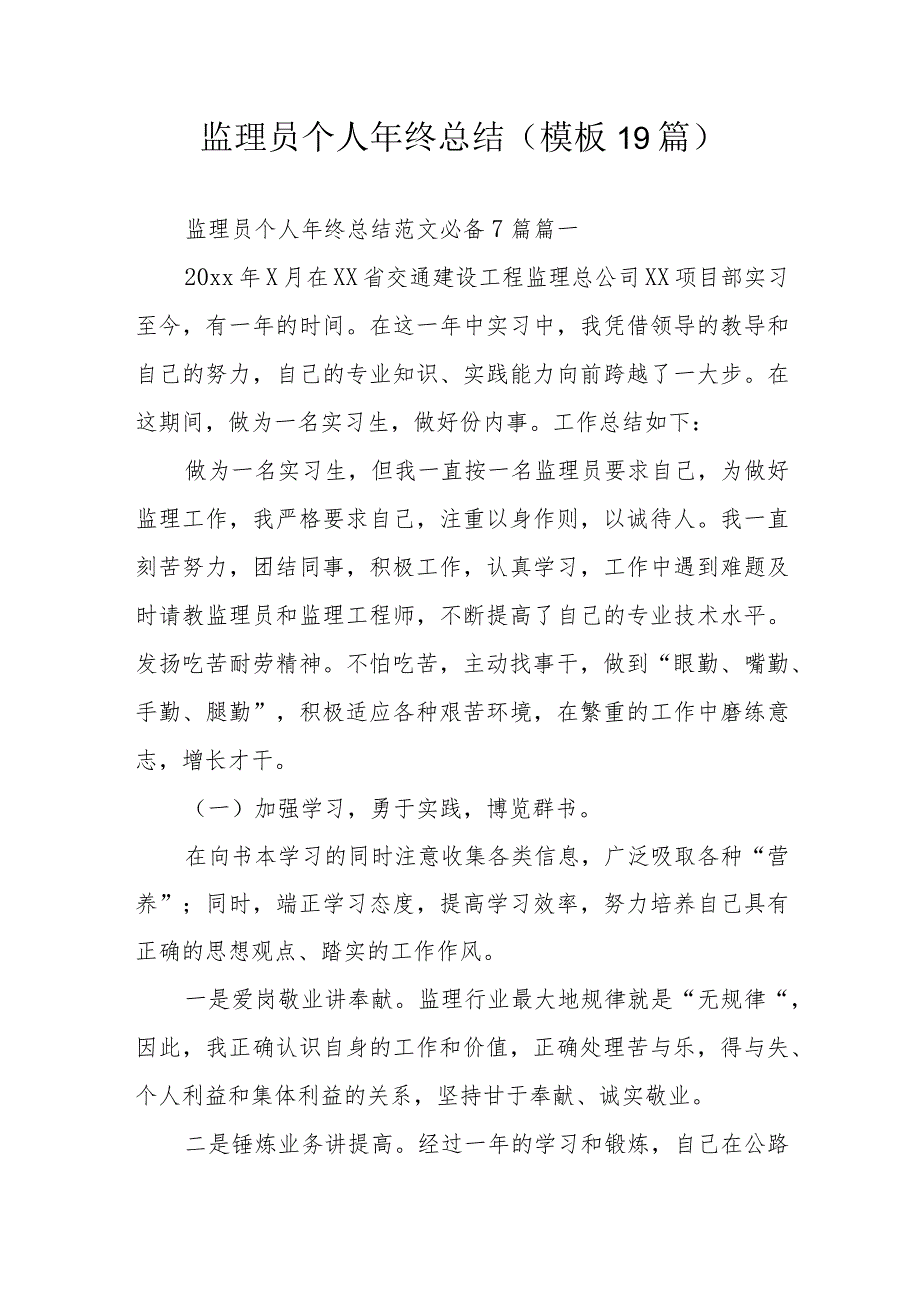 监理员个人年终总结（模板19篇）
监理员个人年终总结范文必备7篇篇一
20xx年X月在XX省交通建设工程监理总公司XX项目部实习
至今，有一年的时间。在这一年中实习中，我凭借领导的教导和
自己的努力，自己的专业知识、实践能力向前跨越了一大步。在
这期间，做为一名实习生，做好份内事。工作总结如下：
做为一名实习生，但我一直按一名监理员要求自己，为做好
监理工作，我严格要求自己，注重以身作则，以诚待人。我一直
刻苦努力，团结同事，积极工作，认真学习，工作中遇到难题及
时请教监理员和监理工程师，不断提高了自己的专业技术水平。
发扬吃苦耐劳精神。不怕吃苦，主动找事干，做到“眼勤、嘴勤、
手勤、腿勤”，积极适应各种艰苦环境，在繁重的工作中磨练意
志，增长才干。
（一）加强学习，勇于实践，博览群书。
在向书本学习的同时注意收集各类信息，广泛吸取各种“营
养”；同时，端正学习态度，提高学习效率，努力培养自己具有
正确的思想观点、踏实的工作作风。
一是爱岗敬业讲奉献。监理行业最大地规律就是“无规律“，
因此，我正确认识自身的工作和价值，正确处理苦与乐，得与失、
个人利益和集体利益的关系，坚持甘于奉献、诚实敬业。
二是锤炼业务讲提高。经过一年的学习和锻炼，自己在公路